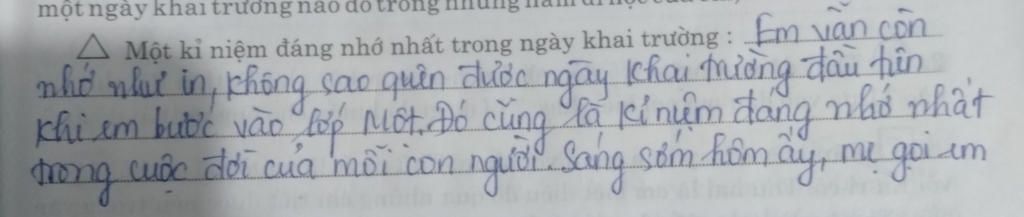 một ngày khai trường nào đó trong những năm đi học
△ Một kỉ niệm đáng nhớ nhất trong ngày khai trường : Em vẫn còn
nhớ như in, không sao quên được ngày khai trường đầu tiên
khi em bước vào lớp Một. Đó cũng là kỉ niệm đáng nhớ nhất
trong cuộc đời của mỗi con người. Sáng sớm hôm ấy, mẹ gọi em